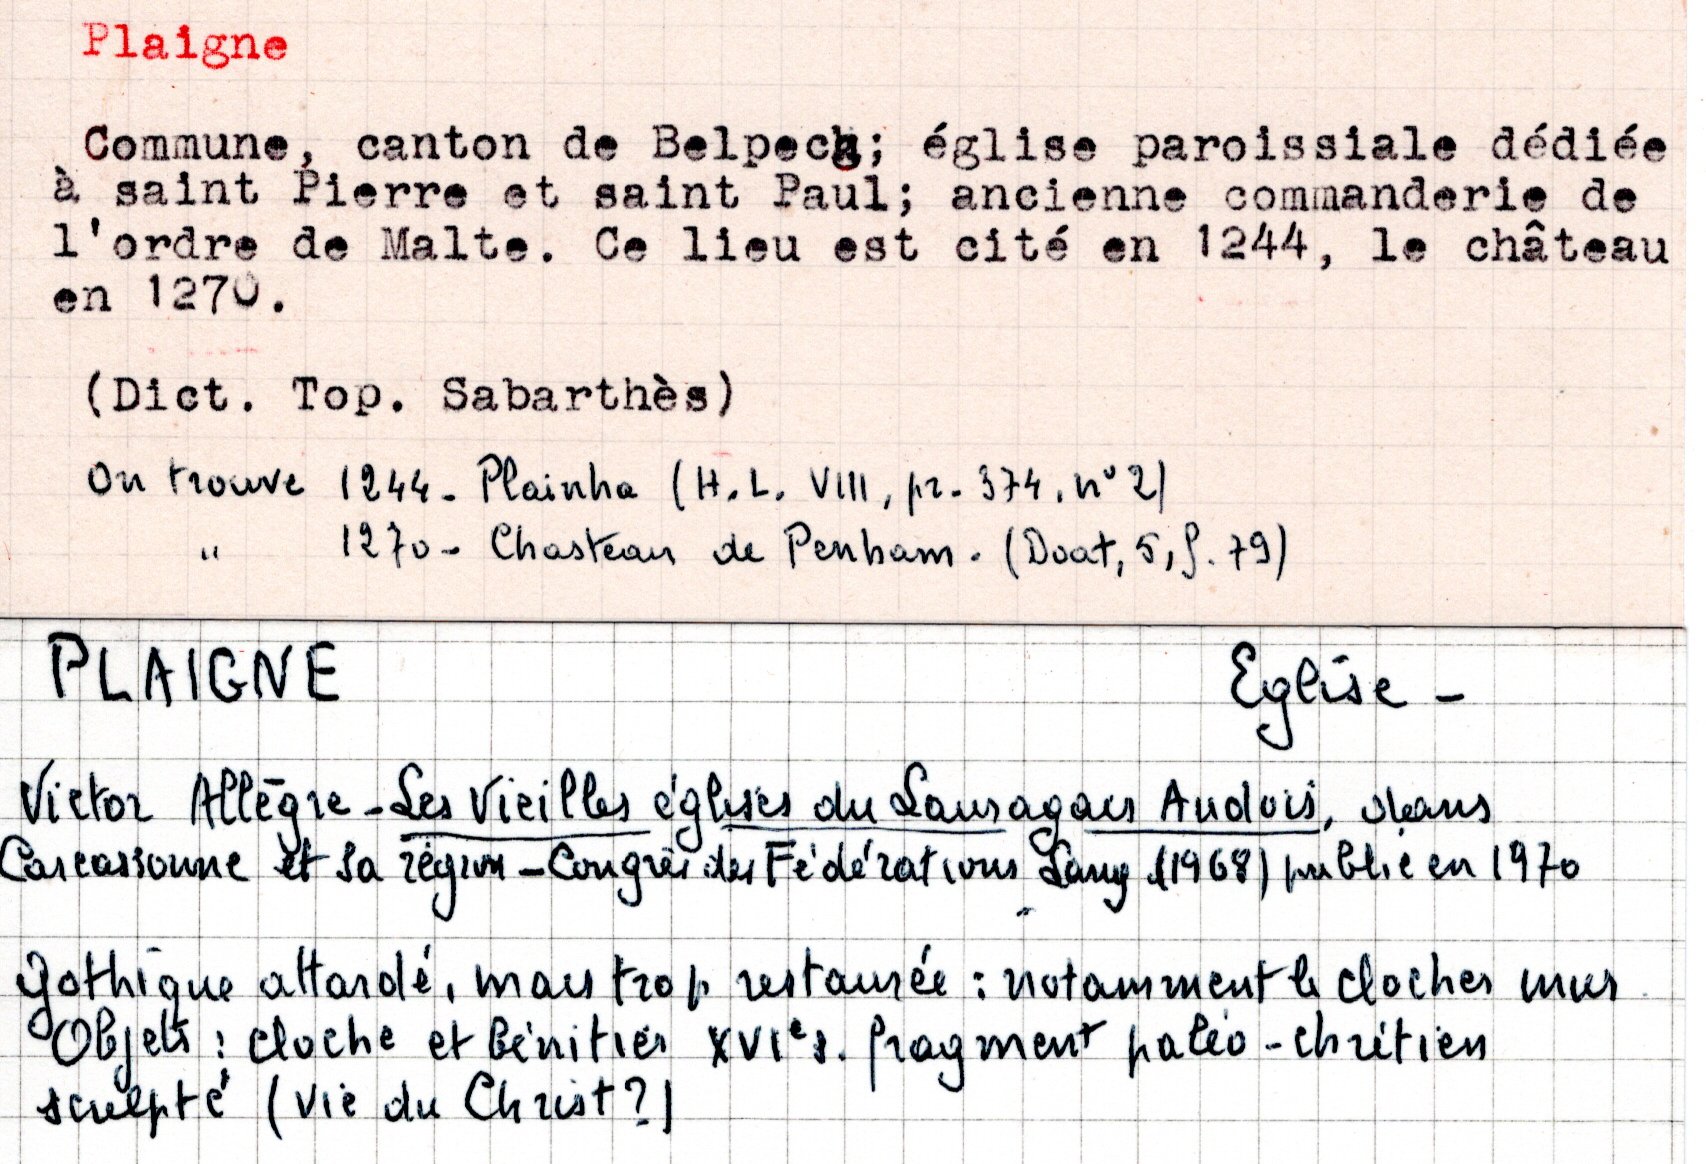 Plaigne
Commune, canton de Belpech; église paroissiale dédiée
à saint Pierre et saint Paul; ancienne commanderie de
l'ordre de Malte. Ce lieu est cité en 1244, le château
en 1270.
(Dict. Top. Sabarthès)
On trouve 1244 - Plainha (H.L. VIII, pr. 374, n° 2)
" 1270 - Chasteau de Penham. (Doat, 5, f. 79)
PLAIGNE Eglise -
Victor Allègre - Les Vieilles églises du Lauragais Audois, dans
Carcassonne et sa région - Congrès des Fédérations Lang (1968) publié en 1970
Gothique attardé, mais trop restaurée : notamment le clocher mur
Objets : cloche et bénitier XVIe s. fragment paléo-chrétien
sculpté (Vie du Christ ?)